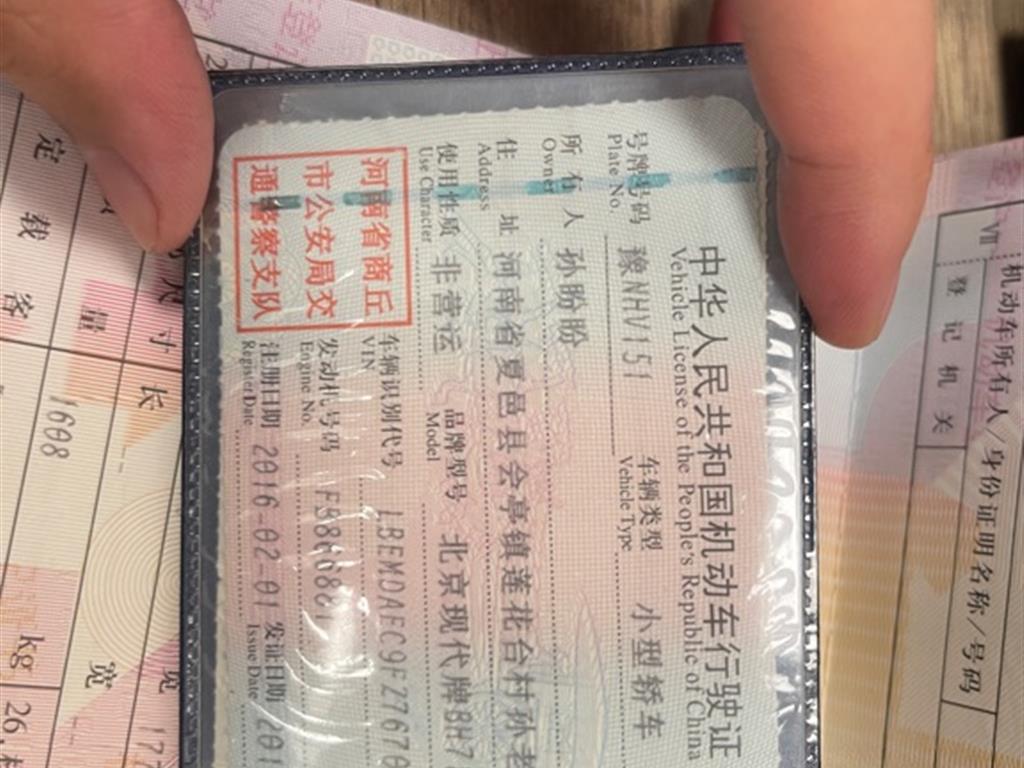 中华人民共和国机动车行驶证
Vehicle License of the People's Republic of China
号牌号码 豫NHV151 车辆类型 小型轿车
Plate No. Vehicle Type
所有人 孙盼盼
Owner
住址 河南省夏邑县会亭镇莲花台村孙老
Address
使用性质 非营运 品牌型号 北京现代牌BH7
Use Character Model
河南省商丘
市公安局交
通警察支队
车辆识别代号 LBEMDAEC9FZ77670
VIN
发动机号码
Engine No.
注册日期 2016-02-01 发证日期 201
Register Date Issue Date
机动车所有人/身份证明名称/号码
VII 登记机关
寸 长 宽
1608
量 kg
定 载 客
26.